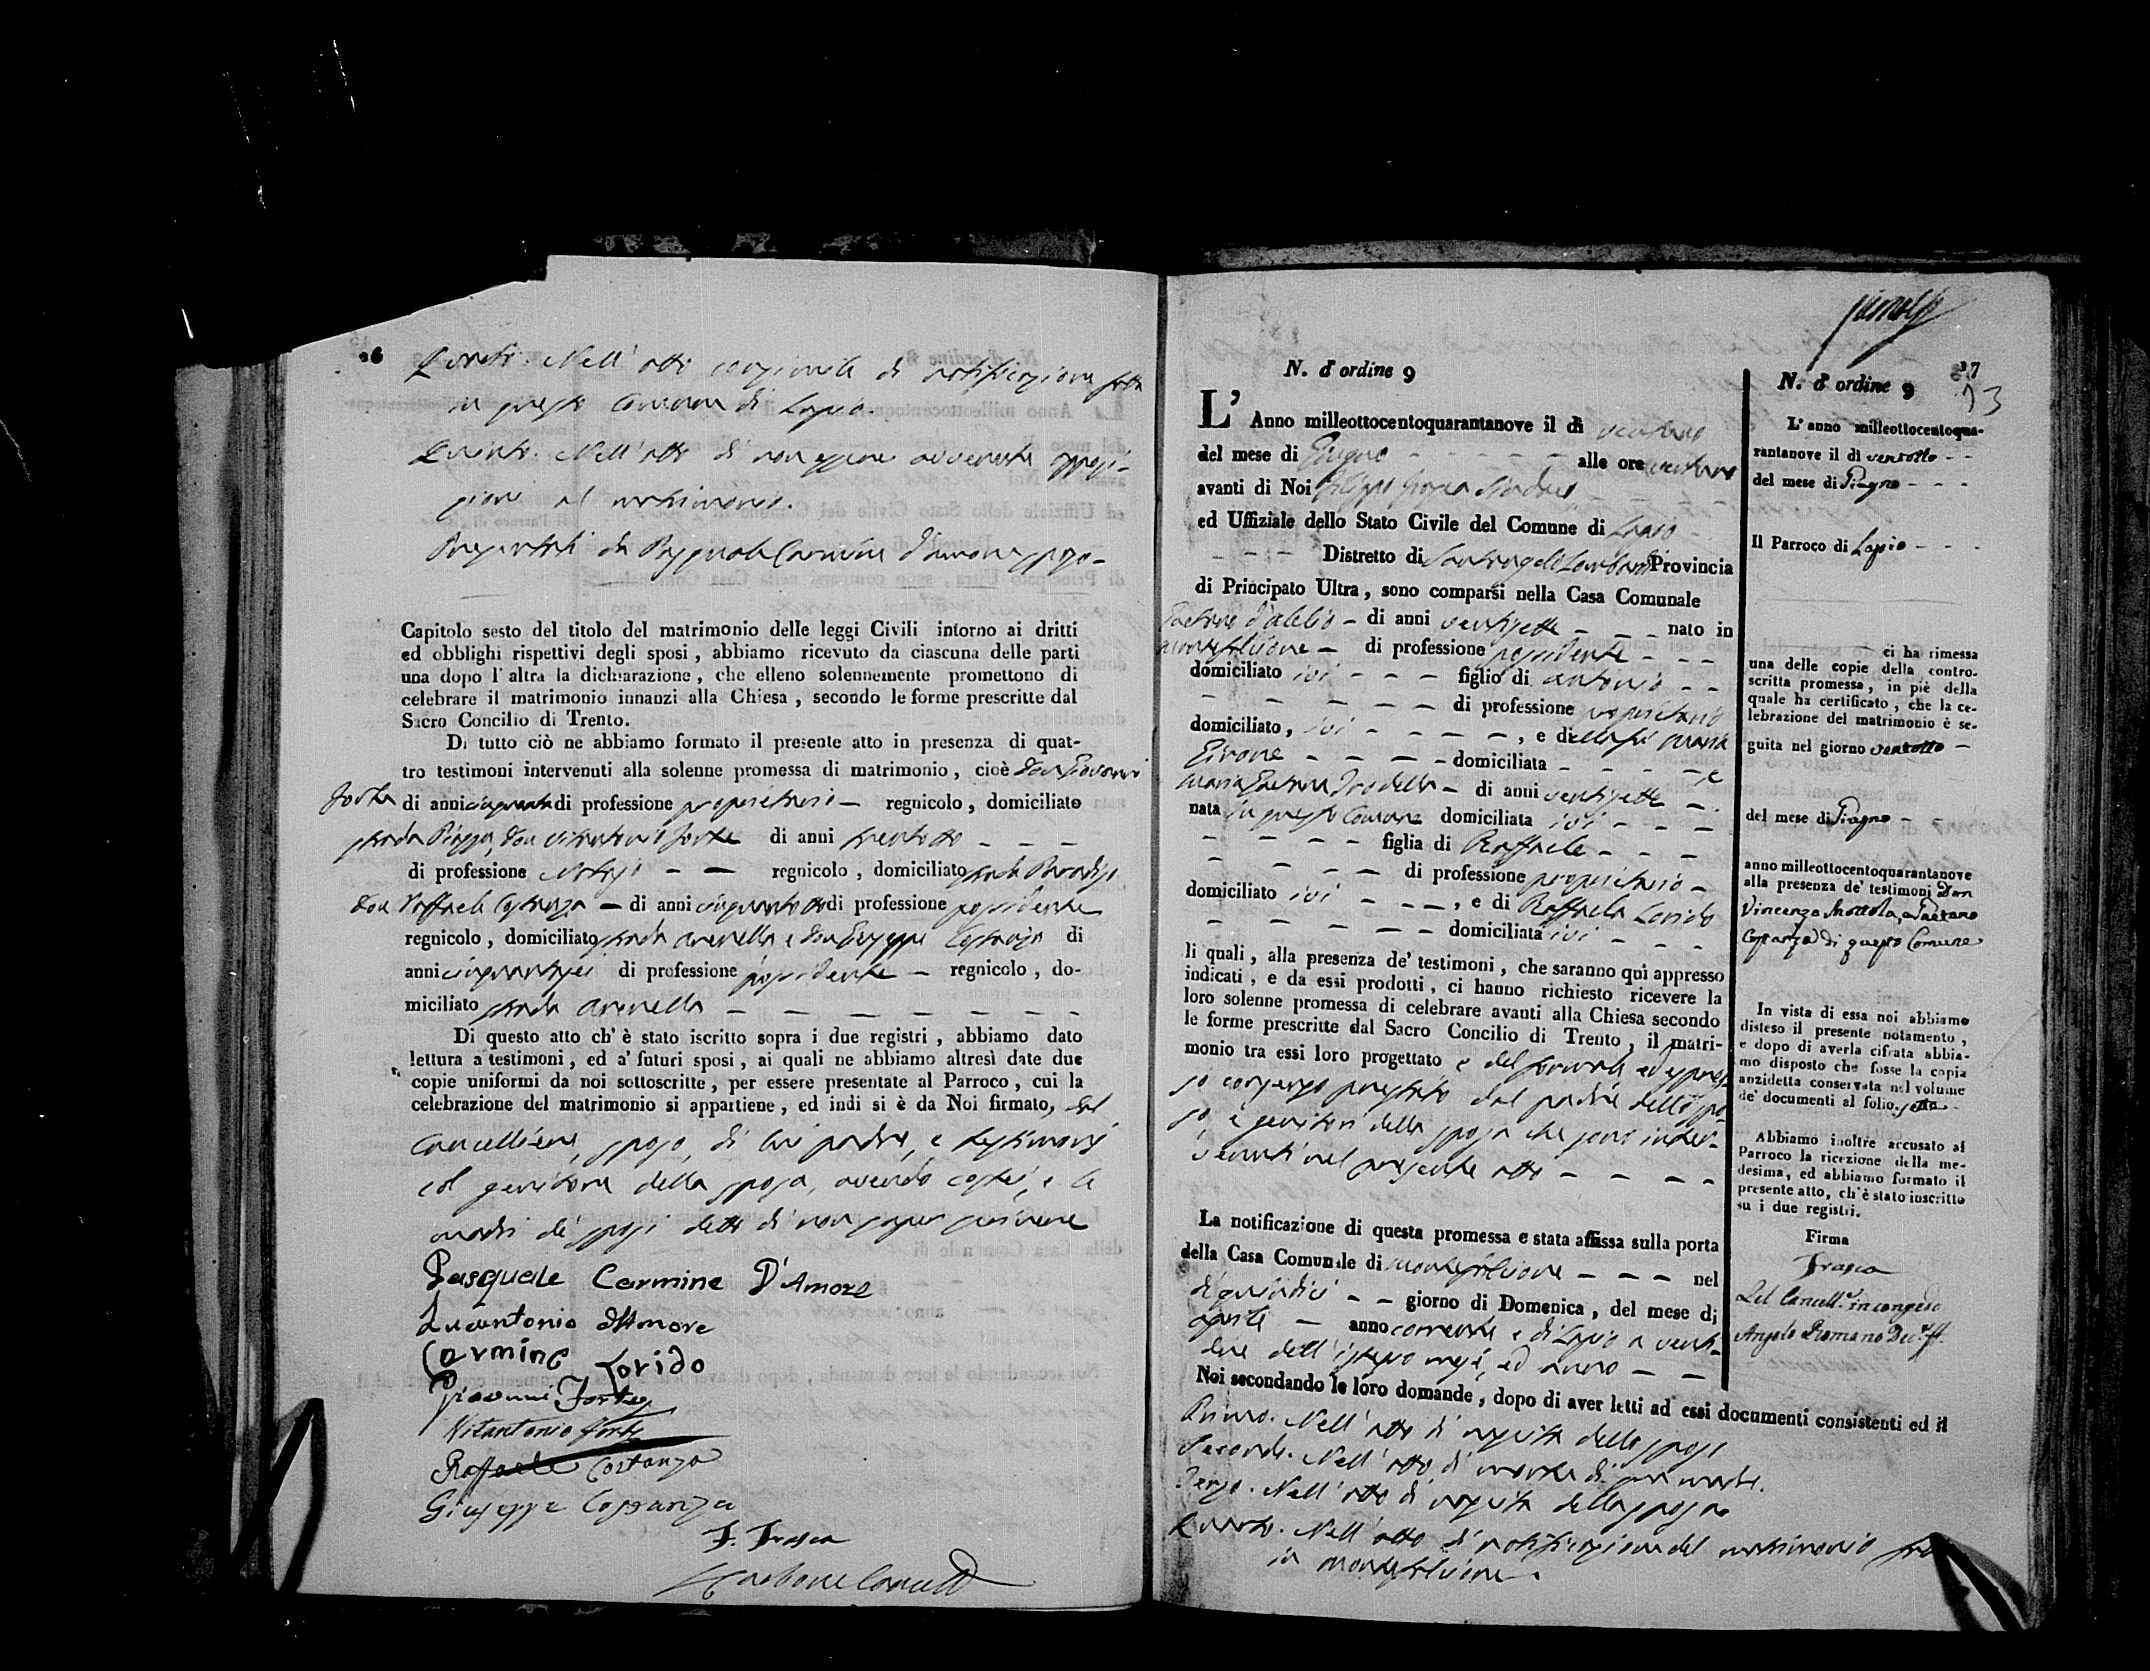 16
Quarto. Nell' atto di notificazione fatta
in questo Comune di Lapio.
Quinto. Nell' atto di non essere avvenuta opposi-
zione al matrimonio.
Presentati da Pasquale Carmine d'amore sposo-
Capitolo sesto del titolo del matrimonio delle leggi Civili intorno ai dritti
ed obblighi rispettivi degli sposi, abbiamo ricevuto da ciascuna delle parti
una dopo l' altra la dichiarazione, che elleno solennemente promettono di
celebrare il matrimonio innanzi alla Chiesa, secondo le forme prescritte dal
Sacro Concilio di Trento.
Di tutto ciò ne abbiamo formato il presente atto in presenza di quat-
tro testimoni intervenuti alla solenne promessa di matrimonio, cioè Don Giovanni
Forte di anni cinquanta di professione proprietario — regnicolo, domiciliato
strada Piazza, Don Vitantonio Forte di anni trentotto - - -
di professione Notajo — — regnicolo, domiciliato strada Paradiso
Don Raffaele Costanza — di anni cinquantotto di professione possidente
regnicolo, domiciliato strada Arenella e Don Giuseppe Costanza di
anni cinquantasei di professione possidente — regnicolo, do-
miciliato strada Arenella — — — — — — —
Di questo atto ch' è stato iscritto sopra i due registri, abbiamo dato
lettura a' testimoni, ed a' futuri sposi, ai quali ne abbiamo altresì date due
copie uniformi da noi sottoscritte, per essere presentate al Parroco, cui la
celebrazione del matrimonio si appartiene, ed indi si è da Noi firmato, dal
Cancelliere, sposo, di lui padre, e testimonj
col genitore della sposa, avendo costei, e le
madri de' sposi detto di non saper scrivere
Pasquale Carmine D'Amore
Lucantonio d'Amore
Carmine Lorido
Giovanni Forte
Vitantonio Forte
Raffaele Costanza
Giuseppe Costanza
F. Frasca
Carbone Cancell
17
13
N. d' ordine 9
L' Anno milleottocentoquarantanove il dì ventuno
del mese di Giugno - - - - - alle ore ventuno
avanti di Noi Filippo Frasca Sindaco
ed Uffiziale dello Stato Civile del Comune di Lapio
- - - Distretto di Santangelo Lombardi Provincia
di Principato Ultra, sono comparsi nella Casa Comunale
Gaetano d'alelio - di anni ventisette - - - nato in
Montefalcione — di professione possidente - - -
domiciliato ivi - - - figlio di Antonio - -
- - - - - di professione proprietario
domiciliato, ivi - - - - -, e di Maria
Girone - - - - domiciliata - - - - e
Maria Gaetana Trodella - di anni ventisette -
nata in questo Comune domiciliata ivi - - -
- - - - figlia di Raffaele - - -
- - - - di professione proprietario -
domiciliato ivi - - -, e di Raffaela Lorido
- - - - - domiciliata ivi - - -
li quali, alla presenza de' testimoni, che saranno qui appresso
indicati, e da essi prodotti, ci hanno richiesto ricevere la
loro solenne promessa di celebrare avanti alla Chiesa secondo
le forme prescritte dal Sacro Concilio di Trento, il matri-
monio tra essi loro progettato e del formale ed espres-
so consenso prestato dal padre dello spo-
so, e genitori della sposa che sono inter-
venuti nel presente atto - - - -
La notificazione di questa promessa e stata affissa sulla porta
della Casa Comunale di Montefalcione - - - nel
dì quindici - - giorno di Domenica, del mese di
Aprile — anno corrente e di Lapio a venti-
due dell' istesso mese, ed anno - -
Noi secondando le loro domande, dopo di aver letti ad essi documenti consistenti ed il
Primo. Nell' atto di nascita dello sposo
Secondo. Nell' atto di morte di sua madre.
Terzo. Nell' atto di nascita della sposa
Quarto. Nell' atto di notificazione del matrimonio fatta
in Montefalcione.
N. d' ordine 9
L' anno milleottocentoqua-
rantanove il dì ventotto - -
del mese di Giugno - - -
Il Parroco di Lapio - - -
ci ha rimessa
una delle copie della contro-
scritta promessa, in piè della
quale ha certificato, che la ce-
lebrazione del matrimonio è se-
guita nel giorno ventotto -
del mese di Giugno -
anno milleottocentoquarantanove
alla presenza de' testimoni Don
Vincenzo Mottola, e Gaetano
Costanza di questo Comune
In vista di essa noi abbiamo
disteso il presente notamento,
e dopo di averla cifrata abbia-
mo disposto che fosse la copia
anzidetta conservata nel volume
de' documenti al folio sette -
Abbiamo inoltre accusato al
Parroco la ricezione della me-
desima, ed abbiamo formato il
presente atto, ch' è stato inscritto
su i due registri.
Firma
Frasca
Pel Cancell.e in congedo
Angelo Romano Dec.e ff.